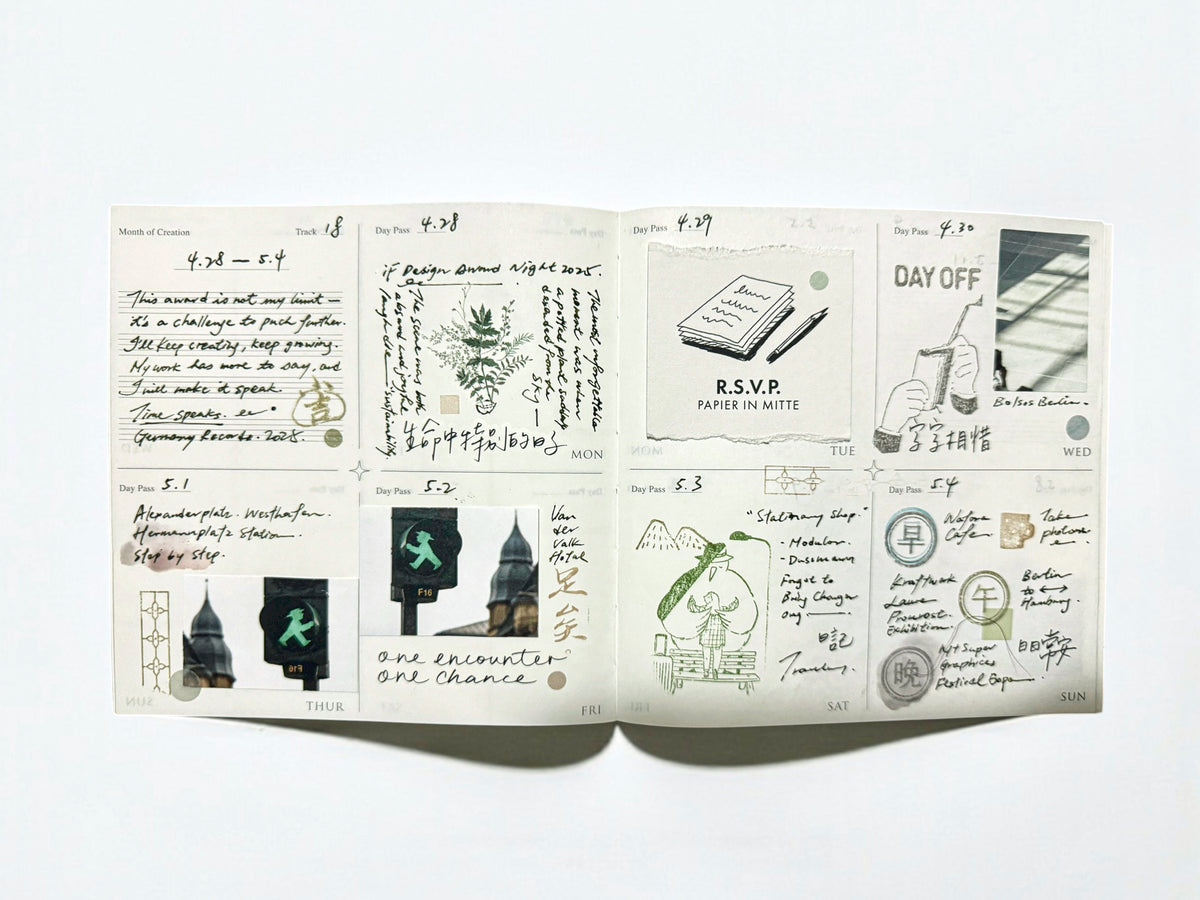 Month of Creation
Track 18
4.28 — 5.4
This award is not my limit —
it's a challenge to puch further.
I'll keep creating, keep growing.
My work has more to say, and
I will make it speak.
Time speaks.
Germany Records. 2025.
吉
Day Pass 4.28
iF Design Award Night 2025.
The scene was both
absurd and joyful
"sustainability
The most unforgettable
moment was when
a potted plant suddenly
descended from the
sky —
生命中特別的日子
MON
Day Pass 4.29
R.S.V.P.
PAPIER IN MITTE
TUE
Day Pass 4.30
DAY OFF
Bolsos Berlin.
字字相惜
WED
Day Pass 5.1
Alexanderplatz. Westhafen.
Hermannplatz Station.
Step by Step.
F16
THUR
Day Pass 5.2
F16
Van
der
Valk
Hotel
足矣
one encounter
one chance
FRI
Day Pass 5.3
"Stationary Shop."
- Modulor.
- Dussmann
Forgot to
Bring Charger
日記
Traveling.
SAT
Day Pass 5.4
早
Cafe
Take
午
Kraftwerk
Laure
Prouvost
Exhibition.
Berlin
to ↔
Hamburg.
晚
Graphics
Festival
日日常安
SUN